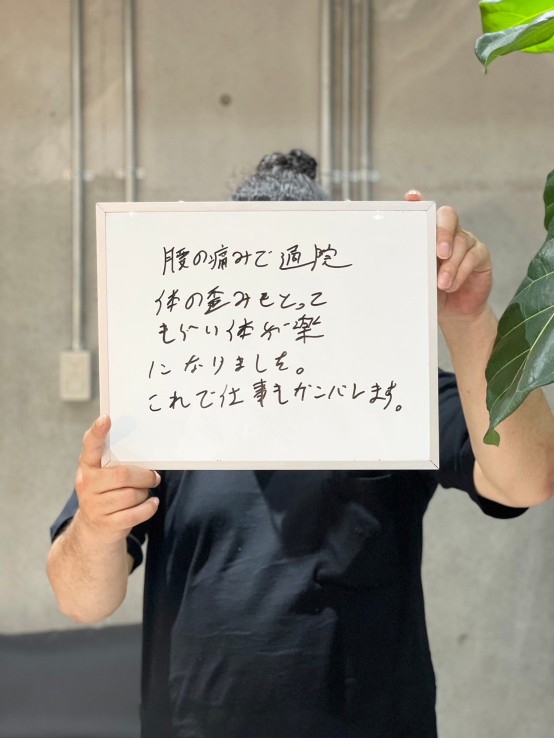 腰の痛みで通院
体の歪みをとって
もらい体が楽
になりました。
これで仕事もガンバレます。